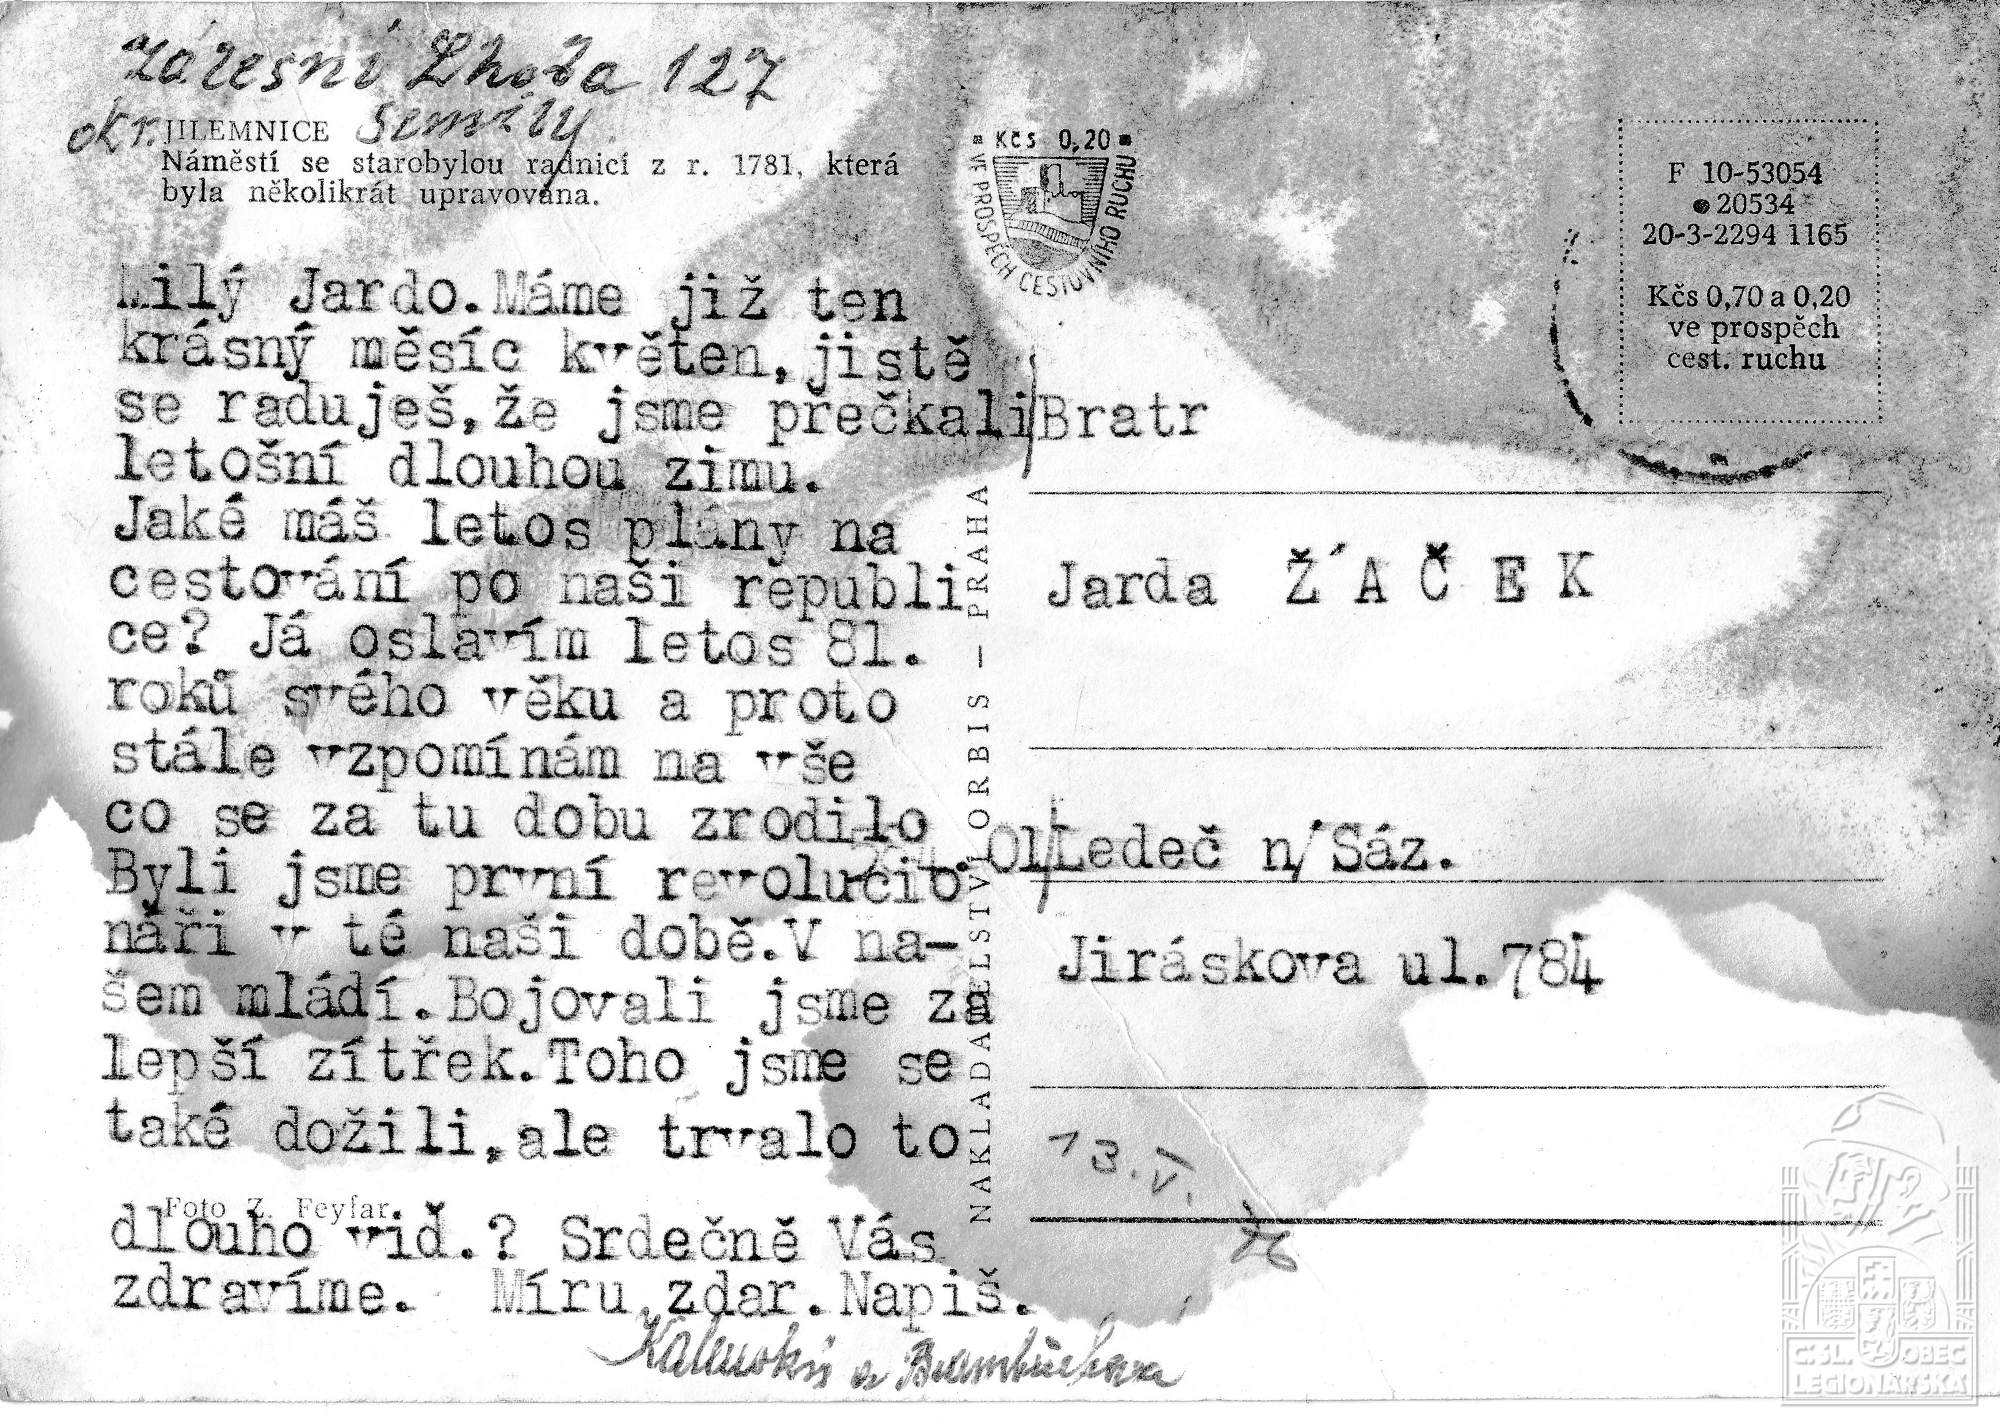 Zálesní Lhota 127
okr. Semily
JILEMNICE
Náměstí se starobylou radnicí z r. 1781, která
byla několikrát upravována.
Kčs 0,20
VE PROSPĚCH CESTOVNÍHO RUCHU
F 10-53054
20534
20-3-2294 1165
Kčs 0,70 a 0,20
ve prospěch
cest. ruchu
Milý Jardo.Máme již ten
krásný měsíc květen,jistě
se raduješ,že jsme přečkali
letošní dlouhou zimu.
Jaké máš letos plány na
cestování po naši republi
ce? Já oslavím letos 81.
roků svého věku a proto
stále vzpomínám na vše
co se za tu dobu zrodilo
Byli jsme první revolucio
náři v té naši době.V na-
šem mládí.Bojovali jsme za
lepší zítřek.Toho jsme se
také dožili,ale trvalo to
Foto Z. Feyfar
dlouho viď.? Srdečně Vás
zdravíme. Míru zdar.Napiš.
a
NAKLADATELSTVÍ ORBIS – PRAHA
Bratr
Jarda Ž´AČEK
Ledeč n/Sáz.
Jiráskova ul.784
13.V.
76
ČSL. OBEC
LEGIONÁŘSKÁ